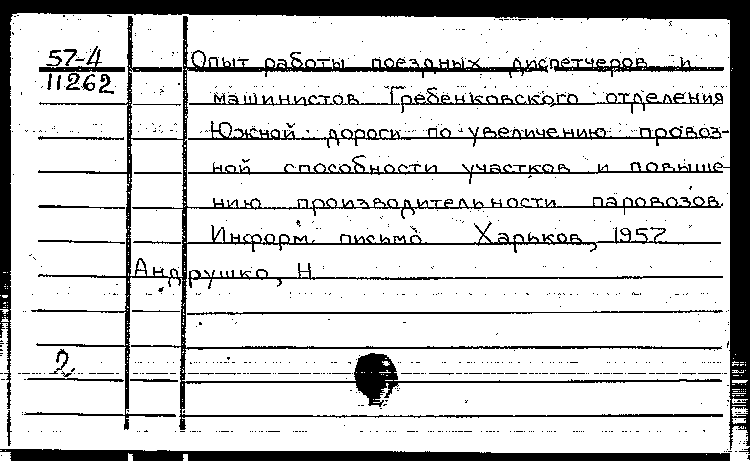 57-4
11262
Опыт работы поездных диспетчеров и
машинистов Гребенковского отделения
Южной дороги по увеличению провоз-
ной способности участков и повыше
нию производительности паровозов.
Информ. письмо. Харьков, 1957
Андрушко, Н
2